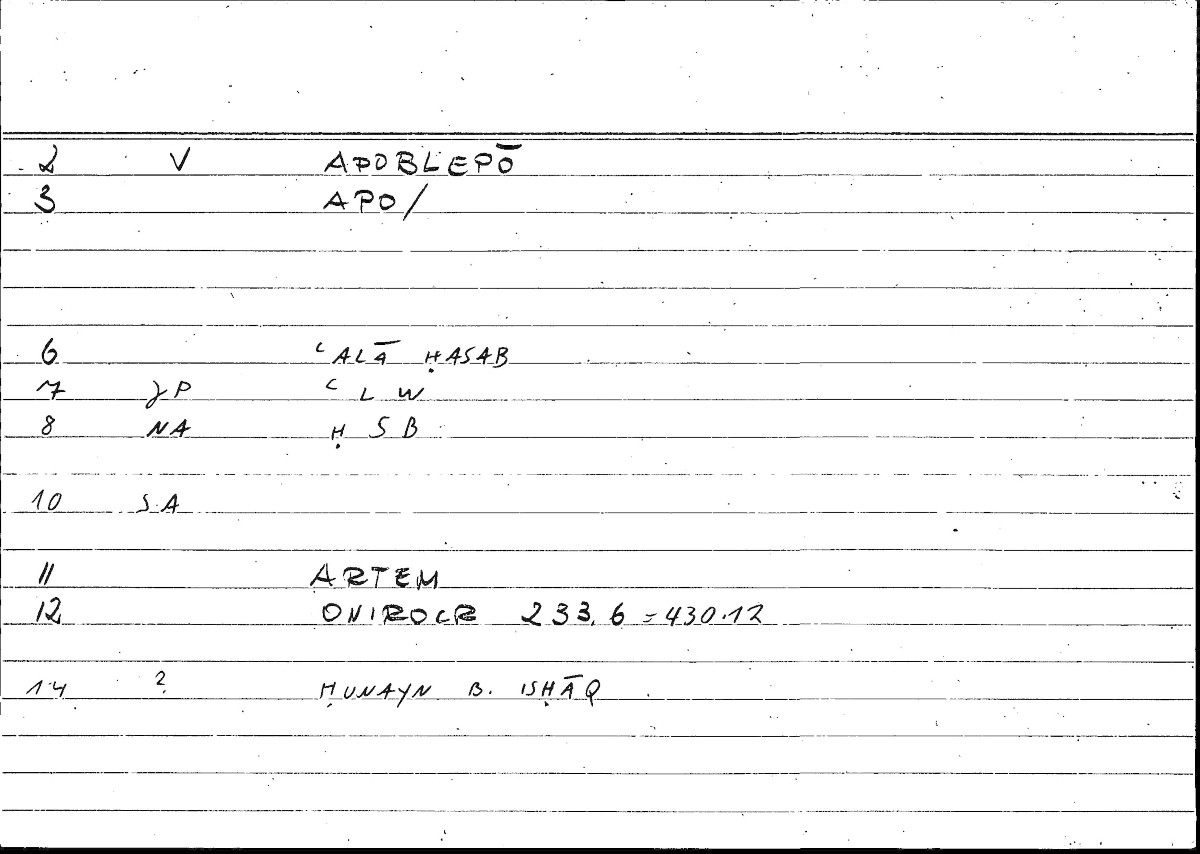 2 V APOBLEPŌ
3 APO/
6 ʿALĀ ḤASAB
7 JP ʿ L W
8 NA Ḥ S B
10 SA
11 ARTEM
12 ONIROCR 233.6 = 430.12
14 ? ḤUNAYN B. ISḤĀQ